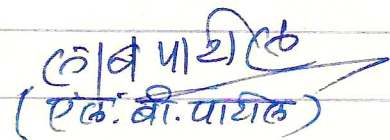 लाब पाटील
(एल. बी. पाटील)